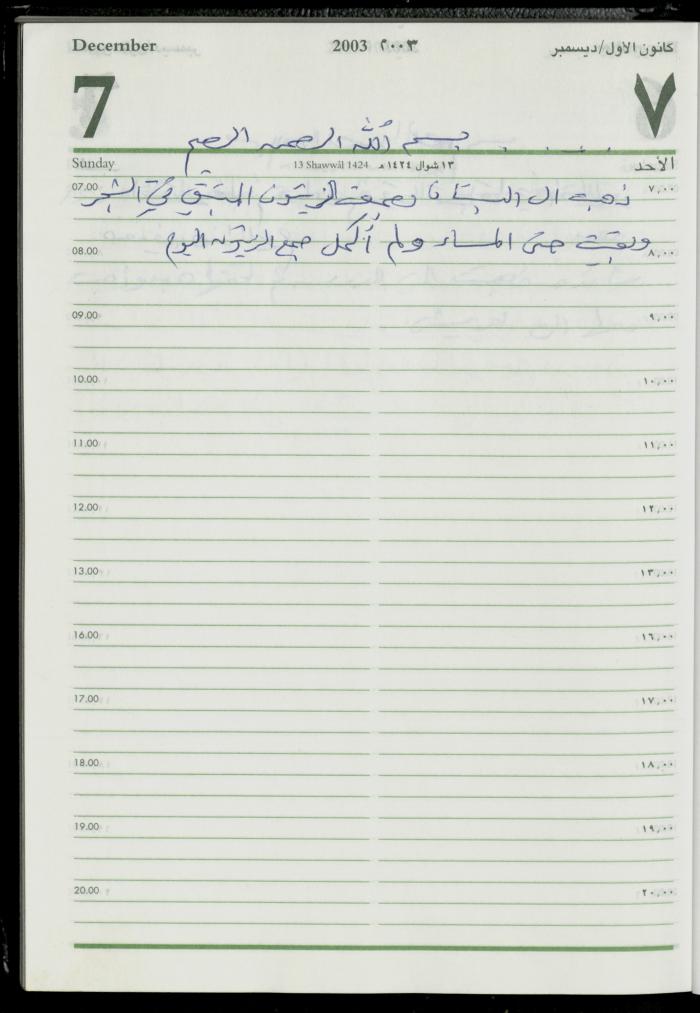 December 2003 ٢٠٠٣ كانون الأول/ديسمبر
7 ٧
بسم الله الرحمن الرحيم
Sunday 13 Shawwāl 1424 ١٣ شوال ١٤٢٤ هـ الأحد
07.00 ذهبت الى البستان وجمعت الزيتون المتبقي في الشجر ٧,٠٠
08.00 وبقيت حتى المساء ولم أكمل جمع الزيتون اليوم ٨,٠٠
09.00 ٩,٠٠
10.00 ١٠,٠٠
11.00 ١١,٠٠
12.00 ١٢,٠٠
13.00 ١٣,٠٠
16.00 ١٦,٠٠
17.00 ١٧,٠٠
18.00 ١٨,٠٠
19.00 ١٩,٠٠
20.00 ٢٠,٠٠